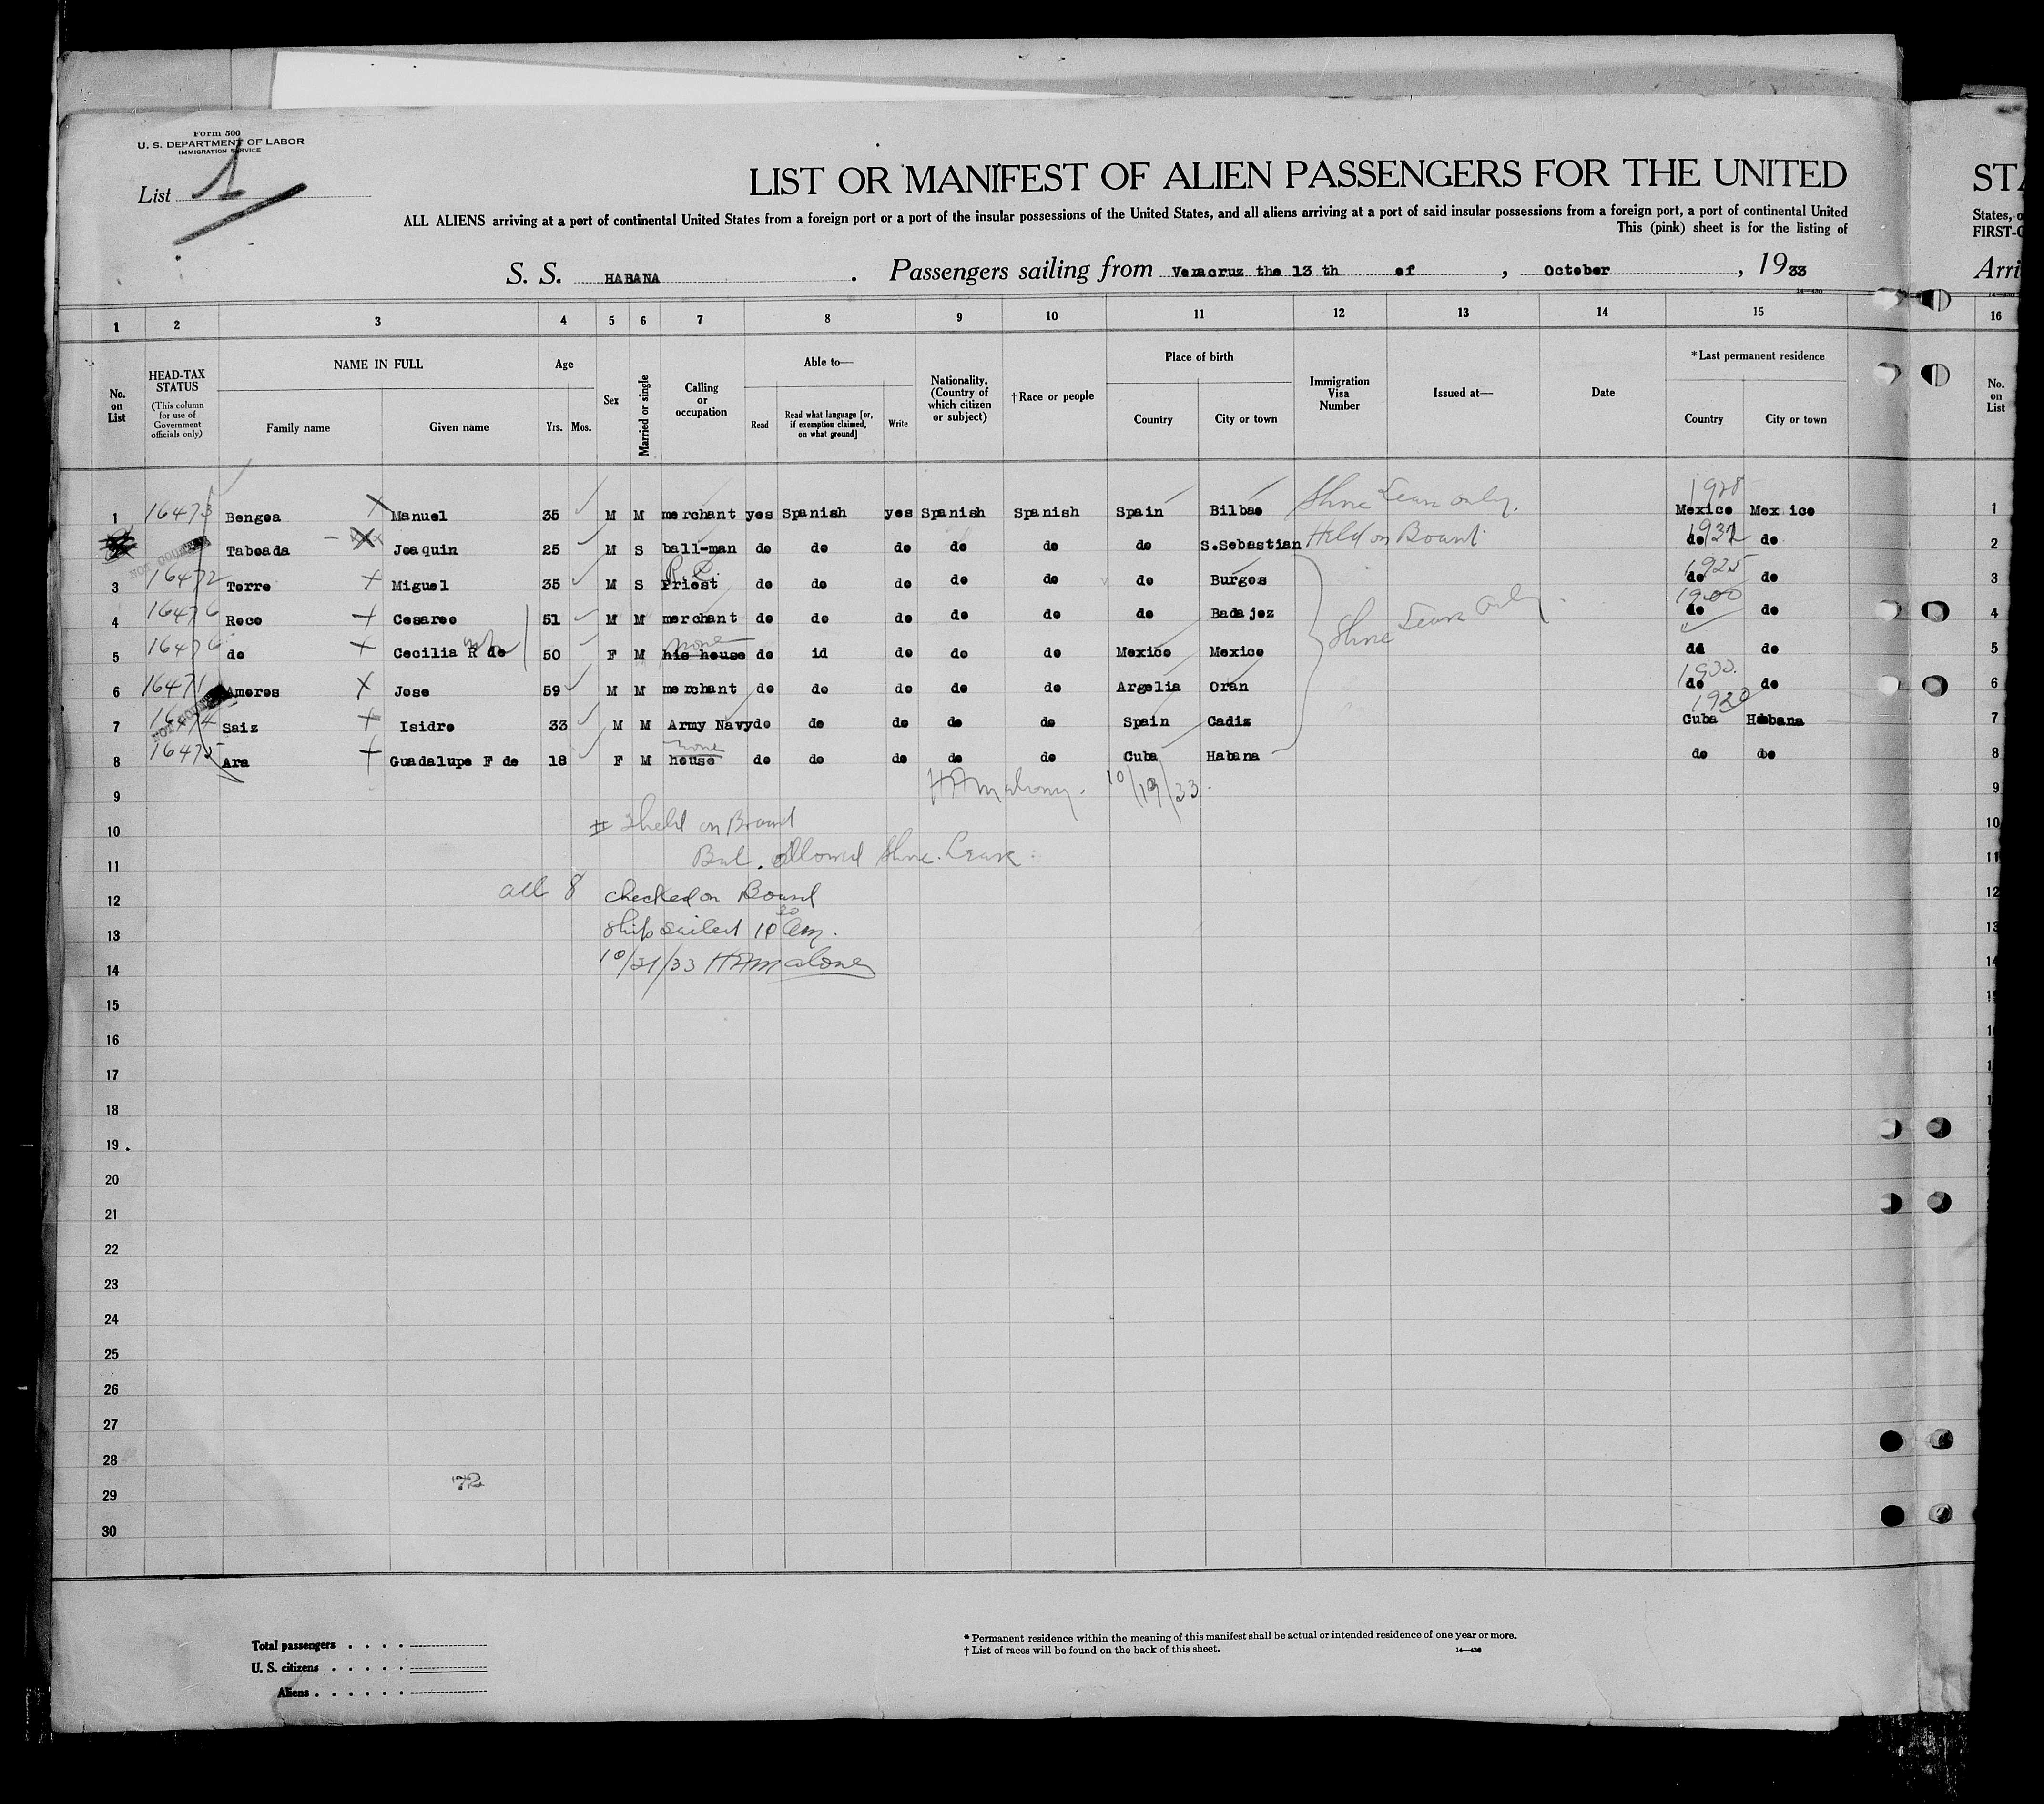 Form 500
U. S. DEPARTMENT OF LABOR
IMMIGRATION SERVICE
List 1
LIST OR MANIFEST OF ALIEN PASSENGERS FOR THE UNITED
STA
ALL ALIENS arriving at a port of continental United States from a foreign port or a port of the insular possessions of the United States, and all aliens arriving at a port of said insular possessions from a foreign port, a port of continental United
States, o
This (pink) sheet is for the listing of
FIRST-C
S. S. HABANA. Passengers sailing from Veracruz the 13 th of, October, 1933
Arri
14—436
1 2 3 4 5 6 7 8 9 10 11 12 13 14 15 16
No. on List
HEAD-TAX STATUS
(This column for use of Government officials only)
NAME IN FULL
Family name Given name
Age
Yrs. Mos.
Sex
Married or single
Calling or occupation
Able to—
Read
Read what language [or, if exemption claimed, on what ground]
Write
Nationality. (Country of which citizen or subject)
† Race or people
Place of birth
Country City or town
Immigration Visa Number
Issued at—
Date
*Last permanent residence
Country City or town
No. on List
1 16473 Bengoa X Manuel 35 M M merchant yes Spanish yes Spanish Spanish Spain Bilbao Shore Leave only. 1928 Mexico Mexico 1
NOT COUNTED Taboada Joaquin 25 M S ball-man do do do do do do S.Sebastian Held on Board. do 1932 do 2
3 16472 Torre X Miguel 35 M S R.C. Priest do do do do do do Burgos 1925 do do 3
4 16476 Roco X Cesareo 51 M M merchant do do do do do do Badajoz Shore Leave Only 1900 do do 4
5 16476 do X Cecilia R de 50 F M none his house do id do do do Mexico Mexico do do 5
6 16471 Ameros X Jose 59 M M merchant do do do do do Argelia Oran do do 6
7 16474 Saiz X Isidro 33 M M Army Navy do do do do do Spain Cadiz 1920 Cuba Habana 7
8 16475 Ara X Guadalupe F de 18 F M none house do do do do do Cuba Habana do do 8
9 10/19/33. 9
10 held on Board 10
11 But allowed Shore Leave 11
12 all 8 checked on Board 12
13 Ship sailed 10 30 am. 13
14 10/21/33 HAMaloney 14
15
16
17
18
19
20
21
22
23
24
25
26
27
28
72
29
30
Total passengers . . . .
U. S. citizens . . . . .
Aliens . . . . . .
* Permanent residence within the meaning of this manifest shall be actual or intended residence of one year or more.
† List of races will be found on the back of this sheet.
14—436